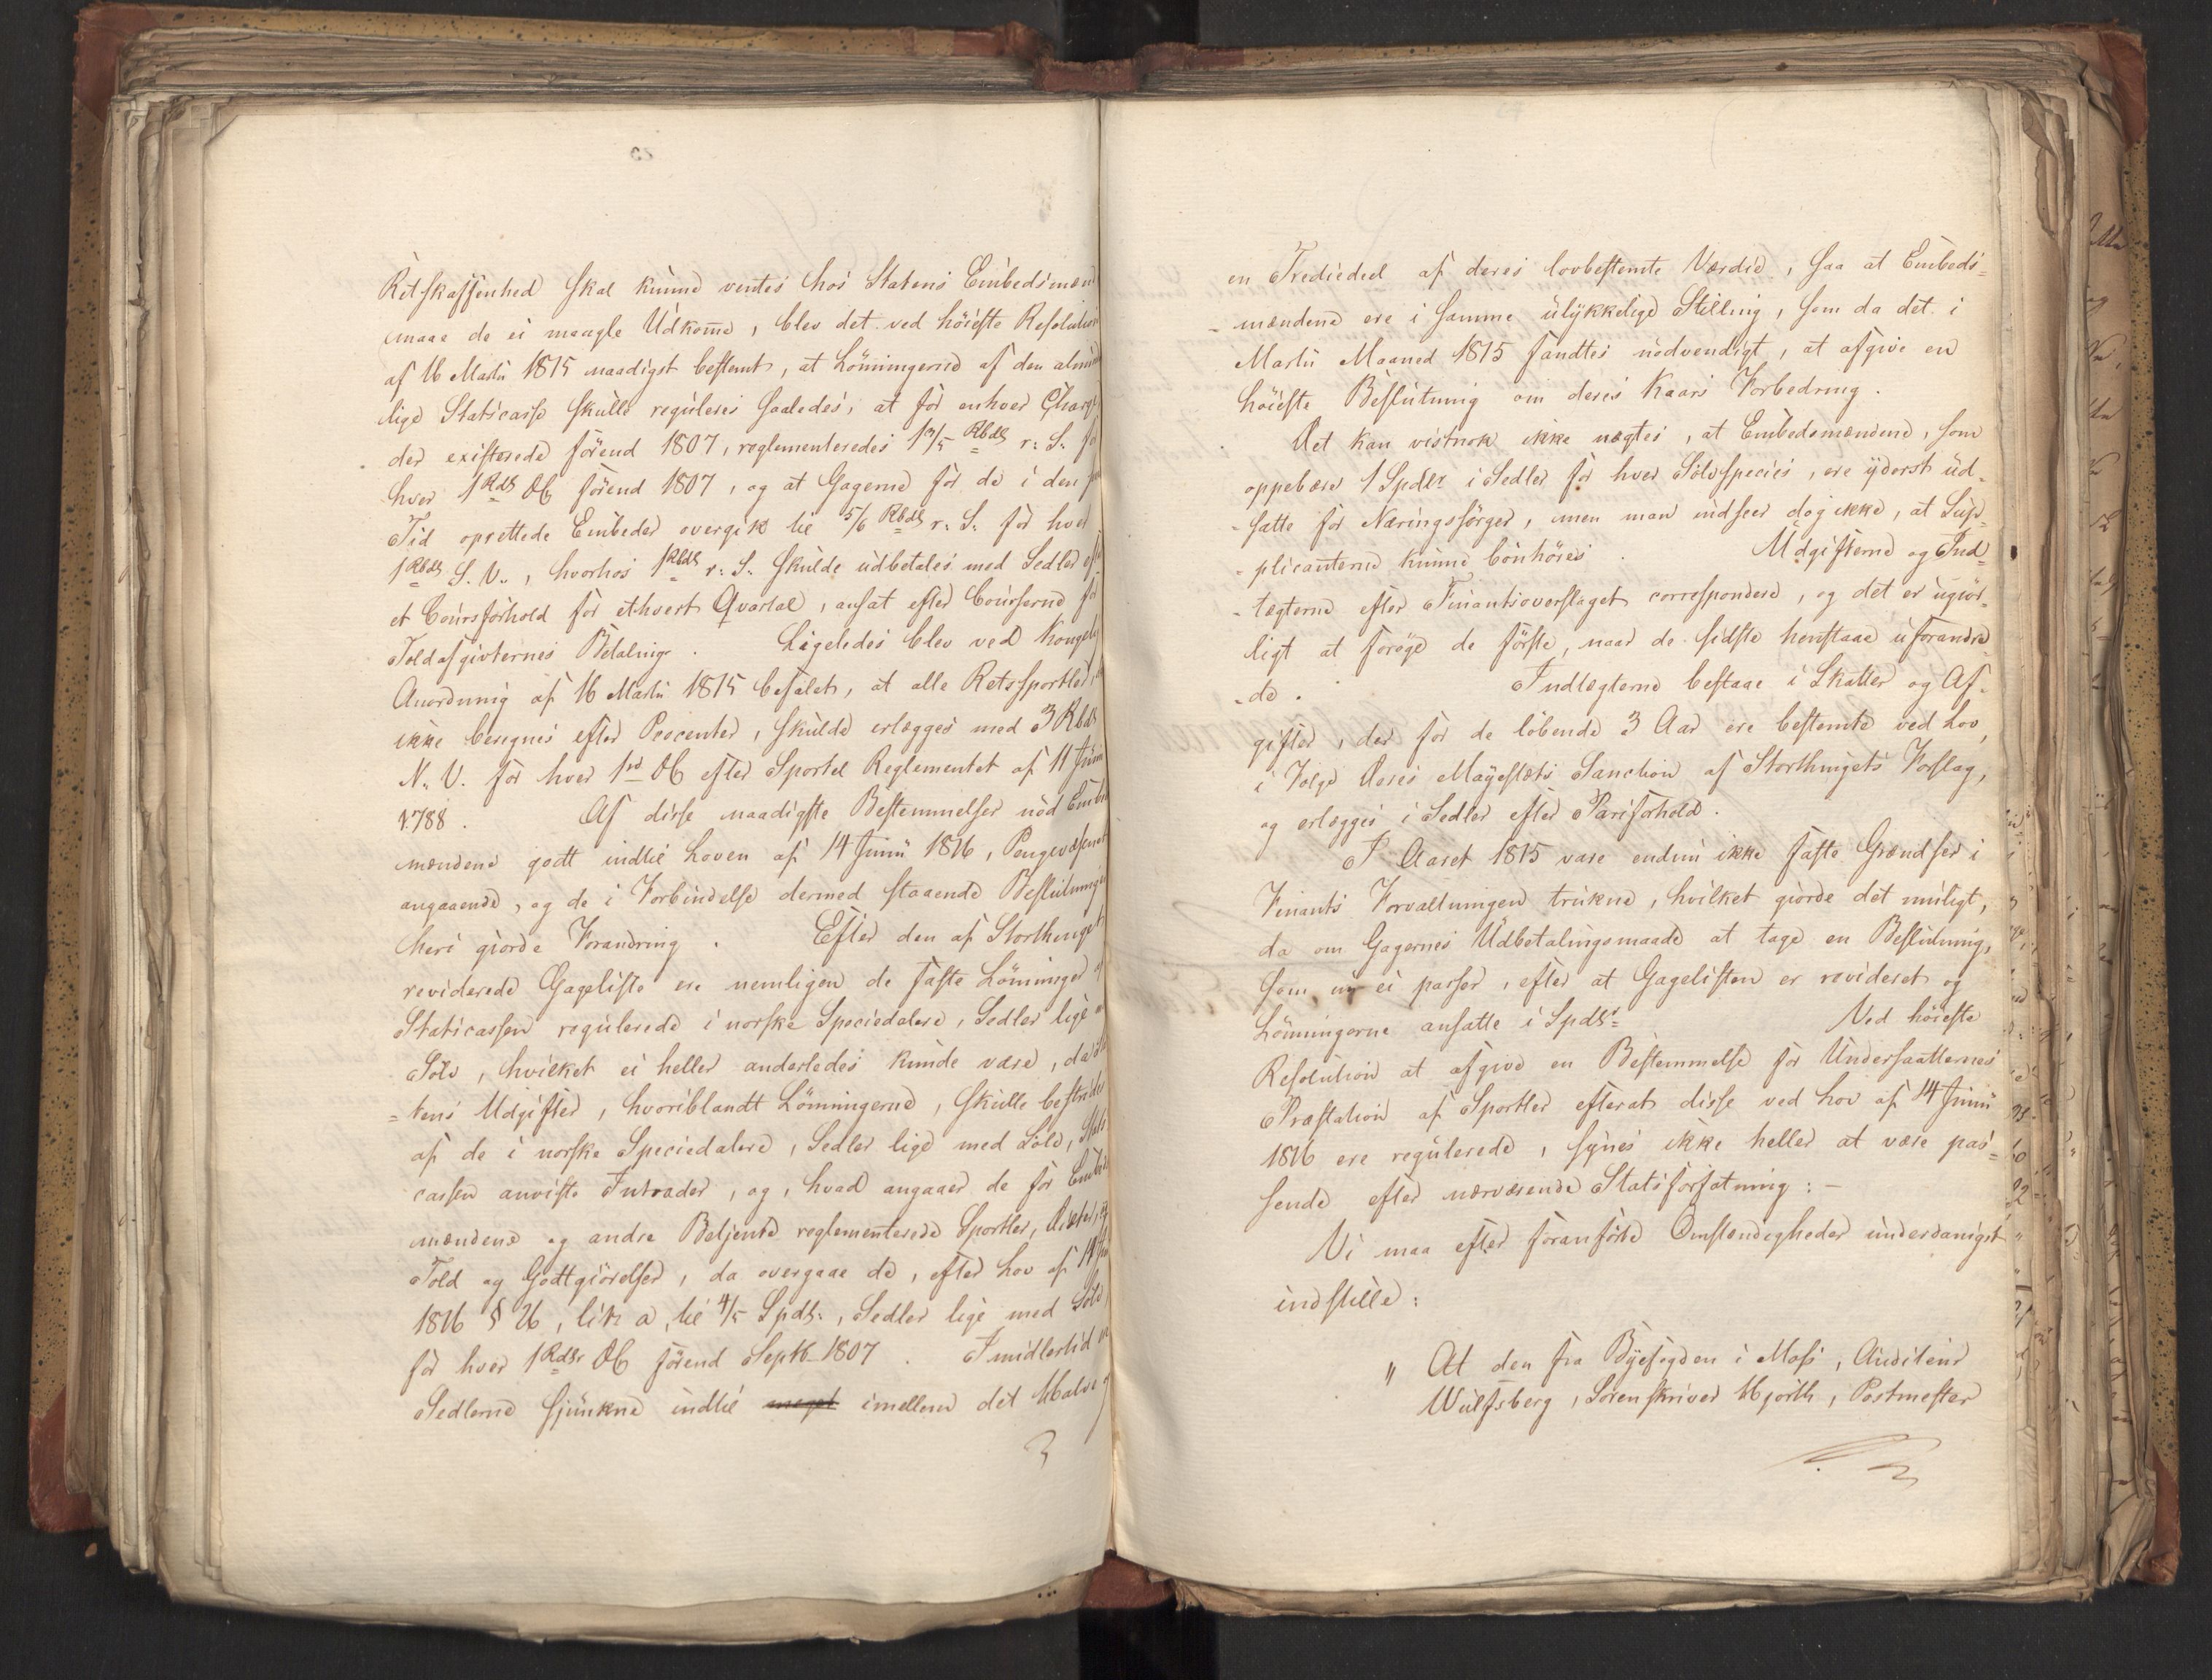 Retskaffenhed skal kunne ventes hos Statens Embedsmænd
maae de ei mangle Udkomme, blev det ved höieste Resolution
af 16 Martii 1815 naadigst bestemt, at Lönningerne af den almin
lige Statscasse skulle reguleres saaledes, at for enhver Charge,
der existerede förend 1807, reglementeredes 1 3/5 Rbdlr r: S. for
hver 1 Rdlr DC förend 1807, og at Gagerne for de i den
Tid oprettede Embeder overgik til 5/6 Rbdlr r: S. for hver
1 Rbdlr S. V., hvorhos 1 Rbdlr r: S. skulde udbetales med Sedler
et Coursforhold for ethvert Qvartal, ansat efter Courserne for
Toldafgivternes Betaling. Ligeledes blev ved Kongelig
Anordning af 16 Martii 1815 befalet, at alle Retssportler,
ikke beregnes efter Procenter, skulde erlægges med 3 Rbdlr
N. V. for hver 1 rd DC efter Sportel Reglementet af 11 Junii
1788. Af disse naadigste Bestemmelser nöd Embeds
mændene godt indtil Loven af 14 Junii 1816, Pengevæsenet
angaaende, og de i Forbindelse dermed staaende Beslutninger
heri giorde Forandring. Efter den af Storthinget
reviderede Gageliste ere nemligen de faste Lönninger
Statscassen regulerede i norske Speciedalere, Sedler lige
Sölv, hvilket ei heller anderledes kunde være, da
=tens Udgifter, hvoriblandt Lönningerne, skulle bestrides
af de i norske Speciedalere, Sedler lige med Sölv, Stats
cassen anviste Intrader, og, hvad angaaer de for Embeds
mændene og andre Betjente reglementerede Sportler, Diæter,
Told og Godtgiörelser, da overgaae de, efter Lov af 14 Jun
1816 § 26, litr a, til 4/5 Spdlr, Sedler lige med Sölv,
for hver 1 Rdlr DC förend Septb 1807. Imidlertid
Sedlerne sjunkne indtil meget imellem det Halve
en Trediedeel af deres lovbestemte Værdie, saa at Embeds=
-mændene ere i samme ulykkelige Stilling, som da det i
Martii Maaned 1815 fandtes nödvendigt, at afgive en
höieste Beslutning om deres Kaars Forbedring.
Det kan vistnok ikke nægtes, at Embedsmændene, som
oppebære 1 Spdlr i Sedler for hver Sölvspecies, ere yderst ud=
-satte for Næringssorger, men man indseer dog ikke, at Sup=
-plicanterne kunne bönhöres. Udgifterne og Ind=
-tægterne efter Finantsoverslaget correspondere, og det er ugiör=
ligt at foröge de förste, naar de sidste henstaae uforandre=
-de. Indtægterne bestaae i Skatter og Af=
gifter, der for de löbende 3 Aar ere bestemte ved Lov,
i Fölge Deres Mayestæts Sanction af Storthingets Forslag,
og erlægges i Sedler efter Pariforhold.
I Aaret 1815 vare endnu ikke faste Grændser i
Finants Forvaltningen trukne, hvilket giorde det muligt,
da om Gagernes Udbetalingsmaade at tage en Beslutning,
som nu ei passer, efter at Gagelisten er revideret og
Lönningerne ansatte i Spdlr. Ved höieste
Resolution at afgive en Bestemmelse for Undersaatternes
Præstation af Sportler efterat disse ved Lov af 14 Junii
1816 ere regulerede, synes ikke heller at være pas=
sende efter nærværende Statsforfatning: -
Vi maa efter foranförte Omstændigheder underdanigst
indstille:
" At den fra Byefogden i Moss, Auditeur
Wulfsberg, Sorenskriver Hjorth, Postmester